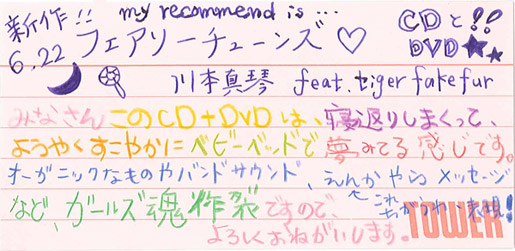 新作!! my recommend is...
6.22 フェアリーチューンズ♡ CDとDVD!!
川本真琴 feat. tiger fake fur
みなさんこのCD+DVDは、寝返りしまくって、
ようやくすこやかにベビーベッドで夢みてる感じです。
オーガニックなものやバンドサウンド、えんかやら メッセージ
など、ガールズ魂炸裂ですので、
よろしくおねがいします。
TOWER